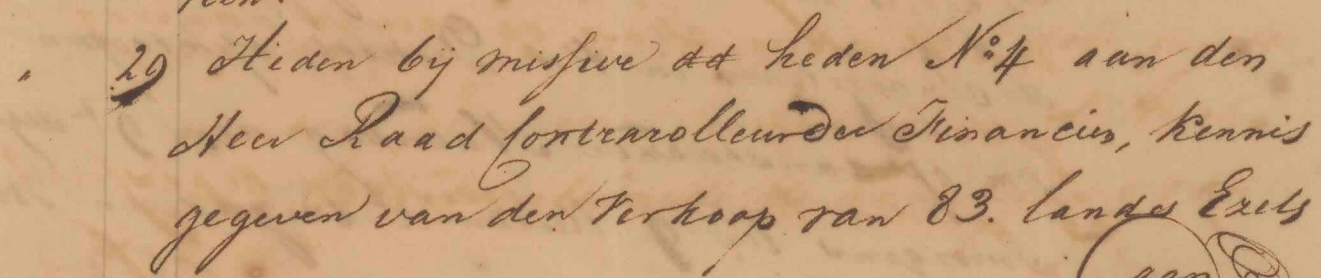 " 29 Heden bij missive dd heden No. 4 aan den
Heer Raad Contrarolleur der Financien, kennis
gegeven van den Verkoop van 83. landes Ezels
aan